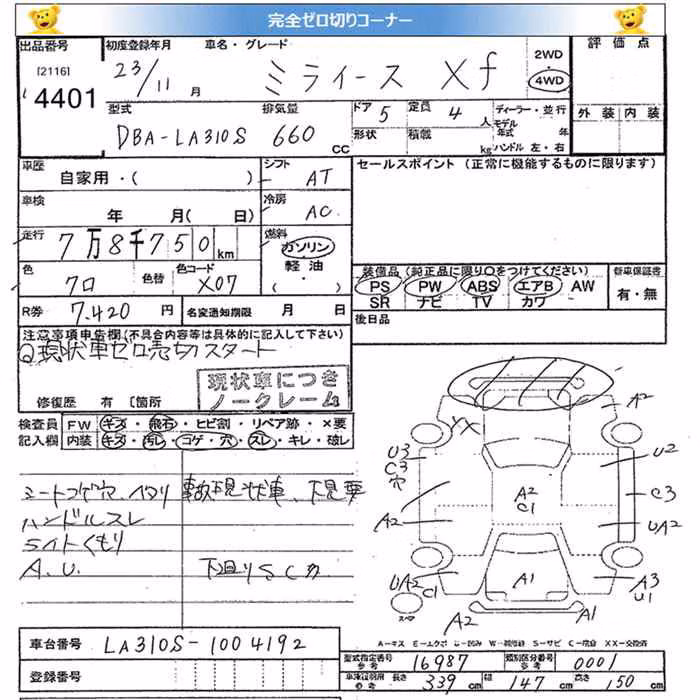 完全ゼロ切りコーナー
出品番号 初度登録年月 車名・グレード 2WD ・ 4WD 評価点
[2116] 4401 23/11 月 ミライース Xf
外装 内装
型式 排気量 ドア 5 定員 4 人 ディーラー・並行
DBA-LA310S 660 cc 形状 積載 kg モデル年式 年 ハンドル 左・右
車歴 自家用・( ) シフト AT セールスポイント (正常に機能するものに限ります)
車検 年 月( 日) 冷房 AC
走行 7万8千750km 燃料 ガソリン 軽油 ( ・ )
色 クロ 色替 色コード X07
装備品(純正品に限り○をつけてください) 新車保証書
PS PW ABS エアB AW 有・無
SR ナビ TV カワ
R券 7,420 円 名変通知期限 月 日
後日品
注意事項申告欄(不具合内容等は具体的に記入して下さい)
現状車ゼロ売切スタート
現状車につき
ノークレーム
修復歴 有 [箇所
検査員 FW キズ・飛石・ヒビ割・リペア跡・×要
記入欄 内装 キズ・汚れ・コゲ・穴・スレ・キレ・破レ
シートコゲ穴、ヘタリ 事故現状車、下見要
ハンドルスレ
ライトくもり
A.U. 下廻りSCカ
XX A2
U3 C3 穴 U2
A2 C1 C3
A2 UA2
UA2 C1 A1 A3 U1
スペア A2 A1
A-キズ E-エクボ U-凹み W-補修跡 S-サビ C-腐食 XX-交換済
車台番号 LA310S-1004192
型式指定番号 参考 16987 類別区分番号 参考 0001
登録番号
車検証明用 参考 長さ 339 cm 幅 147 cm 高さ 150 cm